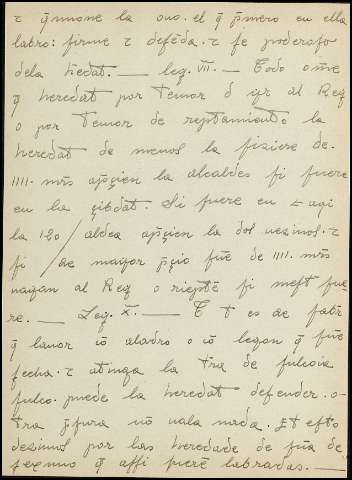 τ q̃mone la ouo. el q̃ p̃mero en ella
labro: firme τ defẽda. τ fe poderofo
dela hedat. — leg. VII. — Todo om̃e
q̃ heredat por temor đ yr al Rey
o por temor de reptamiento la
heredat de menos la fiziere de.
IIII. mr̃s apꝯien la alcaldes fi fuere
en la çibdat. Si fuere en
la 120/aldea apꝯien la dos uezinos. τ
fi / de mayor p̃çio fuẽ de IIII. mr̃s
uayan al Rey o fi meft fue
re. — Leg. X. — E t es de faber
q̃ lauor cõ aladro o cõ legon q̃ fuẽ
fecha. τ atenga la tr̃a de fulco a
fulco. puede la heredat defender. o-
tra p̃fura nõ uala nada. Et efto
dezimos por las heredade de fuã de
fexmo q̃ affi fuerẽ labradas. —